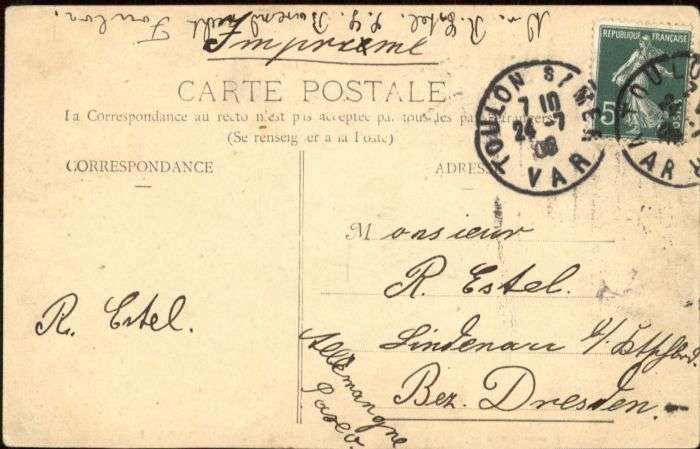 R. Estel.
Toulon.
Imprixme
CARTE POSTALE
La Correspondance au recto n'est pas acceptée par tous les pays étrangers
(Se renseigner à la Poste)
CORRESPONDANCE
ADRESSE
REPUBLIQUE FRANÇAISE
5
POSTES
TOULON S/ MER
7 10
24 -7
08
VAR
TOULON
VAR
Monsieur
R. Estel.
Lindenau
Bez. Dresden.
R. Estel.
Allemangne